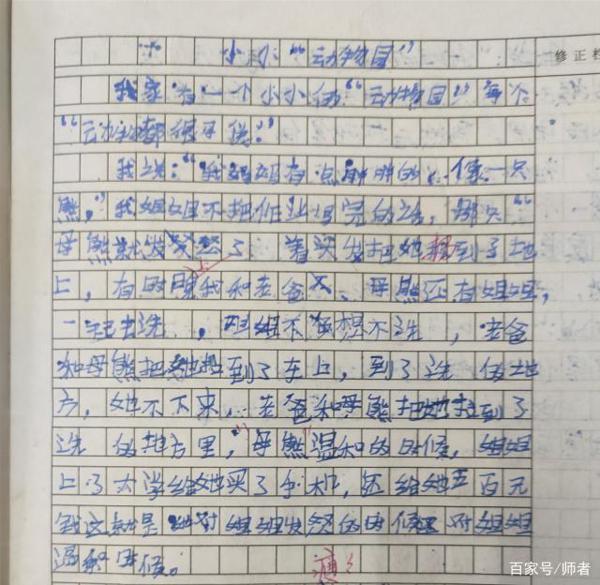 修正栏
小小“动物园”
我家有一个小小的“动物园”每个
“动物都很可爱。”
我说：“我妈妈有点胖胖的，像一只
熊，”我姐姐不把作业写完的话，那只“
母熊就发怒了，着火发把她到了地
上，有时跟我和老爸又、母熊还有姐姐，
一起去洗，姐姐不想不洗，老爸
和母熊把她拉到了车上，到了洗的地
方，她不下来，老爸和母熊把她拉到了
洗的地方里，“母熊”温和的时候，姐姐
上了大学给她买了手机，还给她五百元
钱这就是她对姐姐发怒的时候对姐姐
温和时候。
百家号/师者